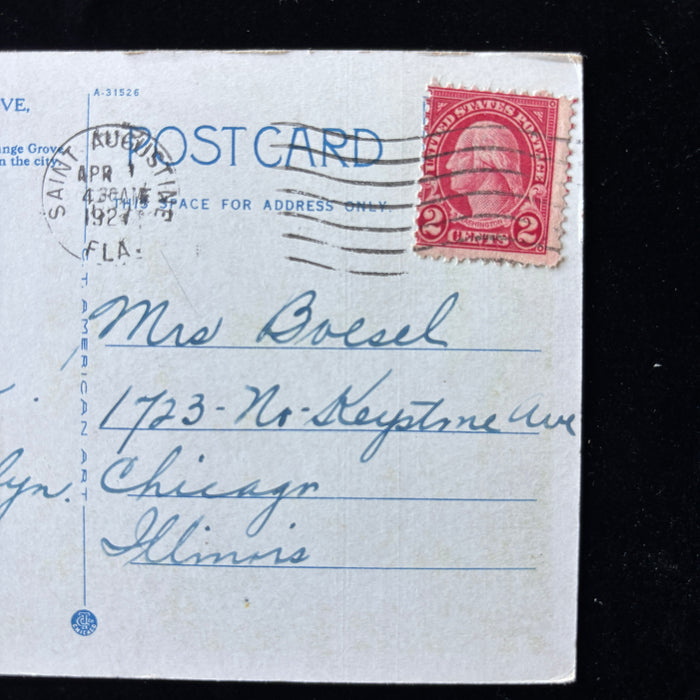 VE,
A-31526
POST CARD
ange Grove
n the city
THIS SPACE FOR ADDRESS ONLY.
SAINT AUGUSTINE
APR 1
430AM
1927
FLA.
UNITED STATES POSTAGE
WASHINGTON
2 CENTS 2
Mrs Boesel
1723-No-Keystone Ave
Chicago
Illinois
lyn.
T. AMERICAN ART
CHICAGO